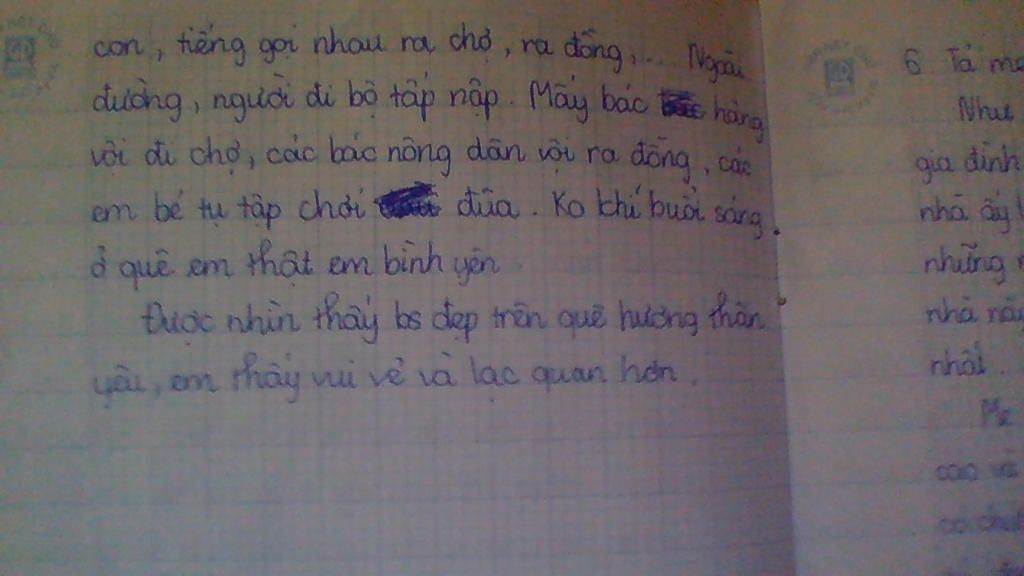 con, tiếng gọi nhau ra chợ, ra đồng,... Ngoài
đường, người đi bộ tấp nập. Mấy bác hàng
vội đi chợ, các bác nông dân vội ra đồng, các
em bé tụ tập chơi đùa. Ko khí buổi sáng
ở quê em thật em bình yên.
Được nhìn thấy bs đẹp trên quê hương thân
yêu, em thấy vui vẻ và lạc quan hơn.
6 Tả mẹ
Như
gia đình
nhà ấy
những
nhà
nhất.
Mẹ
cao và